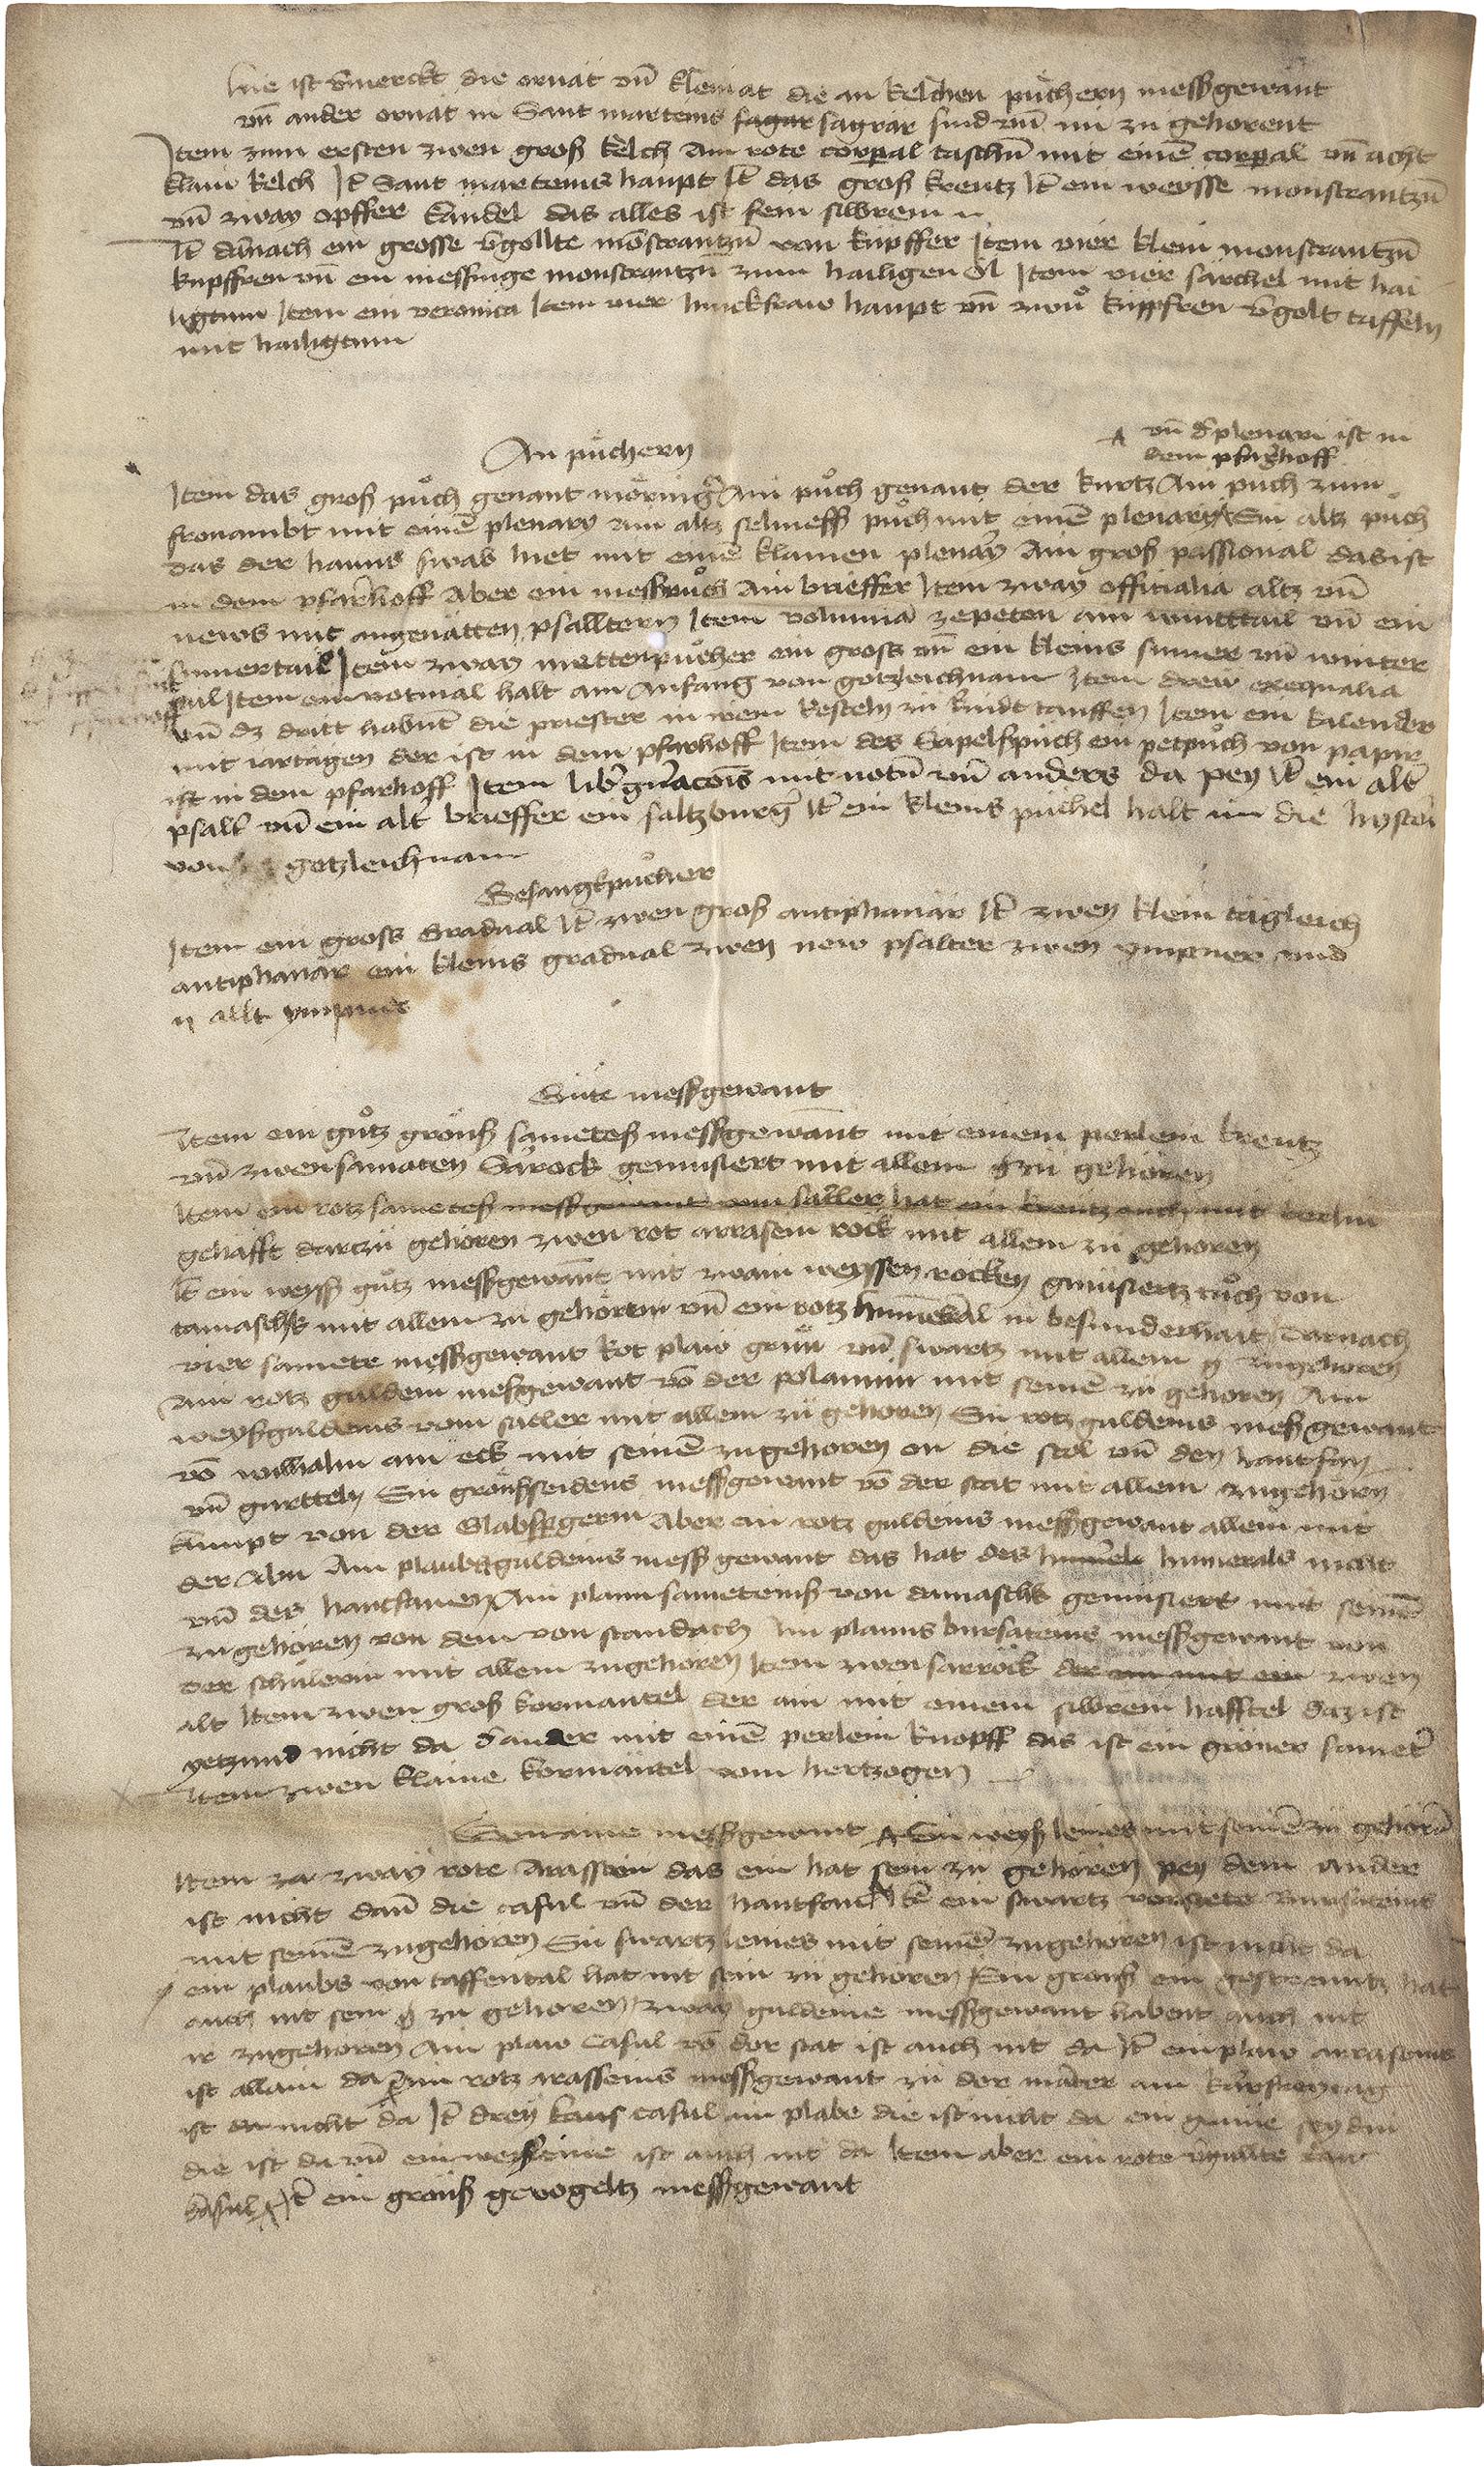 hie ist v̄merckt die ornat vn̄ kleinat die an kelchen püchern messgewant
vn̄ ander ornat in Sant marteins sagar sagrar sind vn̄ im zu gehorent
Item zum ersten zwen groß kelch Ain rote corperal taschn̄ mit einē corperal vn̄ acht
klain kelch It̄ Sant marteins haupt It̄ das groß kreutz It̄ ein weysse monstrantzn̄
vn̄ zway opffer kandel das alles ist fein silbrein
It̄ darnach ein grosse v̄gollte monstrantzn̄ von kupffer Item vier klein monstrantzn̄
kupffren vn̄ ein messinge monstrantzn̄ zum hailigen öl Item vier särchel mit hai
ligtum Item ein veronica Item vier Junckfraw haupt vn̄ zwu kuppfren v̄golt taffeln
mit hailigtum
vn̄ d' plenari ist in
dem pfarhoff
An püchern
Item das groß puch genant möringer Ain puch genant der kurtz Ain puch zum
fronambt mit einē plenary ain altz selmess puch mit einē plenary Ein altz puch
das der hanns swab hiet mit einē klainen plenary Ain groß passional das ist
in dem pfarhoff Aber ein messpuch Ain brieffer Item zway officialia altz vn̄
news mit angenätten psalltern Item volumina zepeten ain wintttail vn̄ ein
sumertail Item zway mettenpucher ein gross vn̄ ein kleins sumer vn̄ winter
tail Item ein votiual halt am Anfang von gotzleichnam Item drew exequialia
vn̄ dz dritt habnt die priester in irem kesteln zu kindt tauffen Item ein kalender
mit iartägen der ist in dem pfarhoff Item des Säpels puch ein petpuch von papir
ist in dem pfarhoff Item lib' gn̄acois mit notn̄ vn̄ anders da pey It̄ ein alt'
psalt' vn̄ ein alt brieffer ein saltzburg' It̄ ein kleins puchel halt im die hystori
von gotzleichnam
Gesangkpücher
Item ein gross Gradual It̄ zwen groß antiphanar It̄ zwey klein tägleich
antiphanar ein kleins gradual zwen new psalter zwen ympner vnd
ii allt ympner
Gute messgewant
Item ein gutz grönß sameteß messgewant mit einem perlein kreutz
vn̄ zwen samaten Sarock gemusiert mit allem zu gehören
Item ein rotz sameteß messgewant vom satler hat ein kreutz auch mit berlin
gehafft dartzu gehören zwen rot arrasein rock mit allem zu gehoren
It̄ ein weyß gutz messgewant mit zwain weyssen röcken gmusiertz tuch von
tamaschk mit allem zu gehörten vn̄ ein rotz humeral in besunderhait Darnach
vier samete messgewant Rot plaw grün vn̄ swartz mit allem zugehoren
Ain rotz guldein messgewant vō der polanin mit seinē zu gehoren Ain
weyßguldeins vom satler mit allem zu gehoren Ein rotz guldeins meßgewant
vō wilhalm am eck mit seinē zugehoren on die stol vn̄ den hantfan
vn̄ gurtteln Ein grönßseidens messgewant vō der stat mit allem zugehörn
kumpt von der Glabsþgerin Aber ein rotz guldeins messgewant allein mit
der Abm Ain plaubs guldeins messgewant das hat des humerals nicht
vn̄ des hantfanen Ain plaun sameteinß von damaschk gemusiert mit seinē
zu gehören von dem von standach Ain plauns bursateins messgewant von
der schulerin mit allem zugehoren Item zwen sarröck der ein mit ein zwen
alt Item zwen groß kormantel der ain mit einem silbrem hafftel daz ist
yetzund nicht da d' ander mit einē perlein knopff das ist ein gröner samet'
Item zwen klaine kormäntel vom hertzogen
Gemaine messgewant Ein weyß leines mit seinē zu gehörn̄
Item zwaÿ rote Arassein das ein hat sein zu gehören pey dem ander
ist nicht dan̄ die casul vn̄ der hantfan It̄ ein swartz bursateins
mit seinē zugehoren Ein swartz leines mit seinē zugehoren ist nicht da
ein plaubs von taffental hat nit sein zu gehoren Ein grönß ein gestreimtz hat
auch nit sein zu gehoren zwaÿ guldeine messgewant habent auch nit
ir zugehoren Ain plaw Casul vō der stat ist auch nit da It̄ ein plaw arraseins
ist allain da Ain rotz arasseins messgewant zu der marter am karfreytag
ist da nicht da It̄ dreÿ kaus casul ain plabe die ist nicht da ein grüne seydin
die ist da vn̄ ein weysseine ist auch nit da Item aber ein rote
kasul It̄ ein grönß gevogeltz messgewant